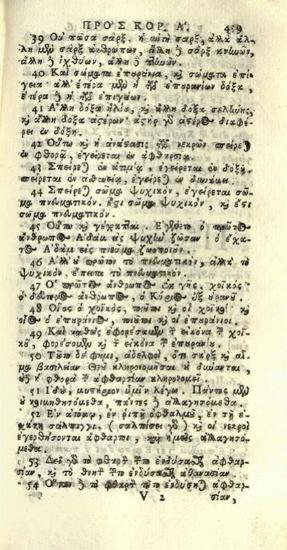 ΠΡΟΣ ΚΟΡ. Α΄. 459
39 Οὐ πᾶσα σὰρξ, ἡ αὐτὴ σὰρξ, ἀλλὰ ἄλ-
λη μὲν σὰρξ ἀνθρώπων, ἄλλη ἢ σὰρξ κτηνῶν,
ἄλλη ἢ ἰχθύων, ἄλλη ἢ
40 Καὶ σώματα ἐπουράνια, καὶ σώματα ἐπί-
γεια· ἀλλ' ἑτέρα μὲν ἡ τῶν ἐπουρανίων δόξα,
ἑτέρα ἢ ἡ τῶν ἐπιγείων.
41 Ἄλλη δόξα ἡλίου, καὶ ἄλλη δόξα σελήνης,
καὶ ἄλλη δόξα ἀστέρων· ἀστὴρ γὸ ἀστέρος διαφέ-
ρει ἐν δόξῃ.
42 Οὕτω καὶ ἡ ἀνάστασις τῶν νεκρῶν. σπείρεται
ἐν φθορᾷ, ἐγείρεται ἐν ἀφθαρσίᾳ.
43 Σπείρεται ἐν ἀτιμίᾳ, ἐγείρεται ἐν δόξῃ·
σπείρεται ἐν ἀσθενείᾳ, ἐγείρεται ἐν δυνάμει.
44 Σπείρεται σῶμα ψυχικὸν, ἐγείρεται σῶ-
μα πνευματικόν. ἔστι σῶμα ψυχικὸν, καὶ ἔστι
σῶμα πνευματικόν.
45 Οὕτω καὶ γέγραπται· Ἐγένετο ὁ πρῶτος
ἄνθρωπος Ἀδὰμ εἰς ψυχὴν ζῶσαν· ὁ ἔσχα-
τος Ἀδὰμ εἰς πνεῦμα ζωοποιοῦν.
46 Ἀλλ' οὐ πρῶτον τὸ πνευματικὸν, ἀλλὰ τὸ
ψυχικὸν, ἔπειτα τὸ πνευματικόν.
47 Ὁ πρῶτος ἄνθρωπος ἐκ γῆς, χοϊκός·
ὁ δεύτερος ἄνθρωπος, ὁ Κύριος ἐξ οὐρανοῦ.
48 Οἷος ὁ χοϊκὸς, τοιοῦτοι καὶ οἱ χοϊκοί· καὶ
οἷος ὁ ἐπουράνιος, τοιοῦτοι καὶ οἱ ἐπουράνιοι.
49 Καὶ καθὼς ἐφορέσαμεν τὴν εἰκόνα τοῦ χοϊ-
κοῦ, φορέσομεν καὶ τὴν εἰκόνα τοῦ ἐπουρανίου.
50 Τοῦτο δέ φημι, ἀδελφοὶ, ὅτι σὰρξ καὶ αἷ-
μα βασιλείαν Θεοῦ κληρονομῆσαι οὐ δύνανται,
οὐδὲ ἡ φθορὰ τὴν ἀφθαρσίαν κληρονομεῖ.
51 Ἰδοὺ, μυστήριον ὑμῖν λέγω. Πάντες μὲν
οὐ κοιμηθησόμεθα, πάντες ἢ ἀλλαγησόμεθα.
52 Ἐν ἀτόμῳ, ἐν ῥιπῇ ὀφθαλμοῦ, ἐν τῇ ἐ-
σχάτῃ σάλπιγγι, (σαλπίσει γὸ) καὶ οἱ νεκροὶ
ἐγερθήσονται ἄφθαρτοι, καὶ ἡμεῖς ἀλλαγησό-
μεθα.
53 Δεῖ γὸ τὸ φθαρτὸν τοῦτο ἐνδύσασθαι ἀφθαρ-
σίαν, καὶ τὸ θνητὸν τοῦτο ἐνδύσασθαι ἀθανασίαν.
54 Ὅταν ἢ τὸ φθαρτὸν τοῦτο ἐνδύσηται ἀφθαρ-
V 2 σίαν,